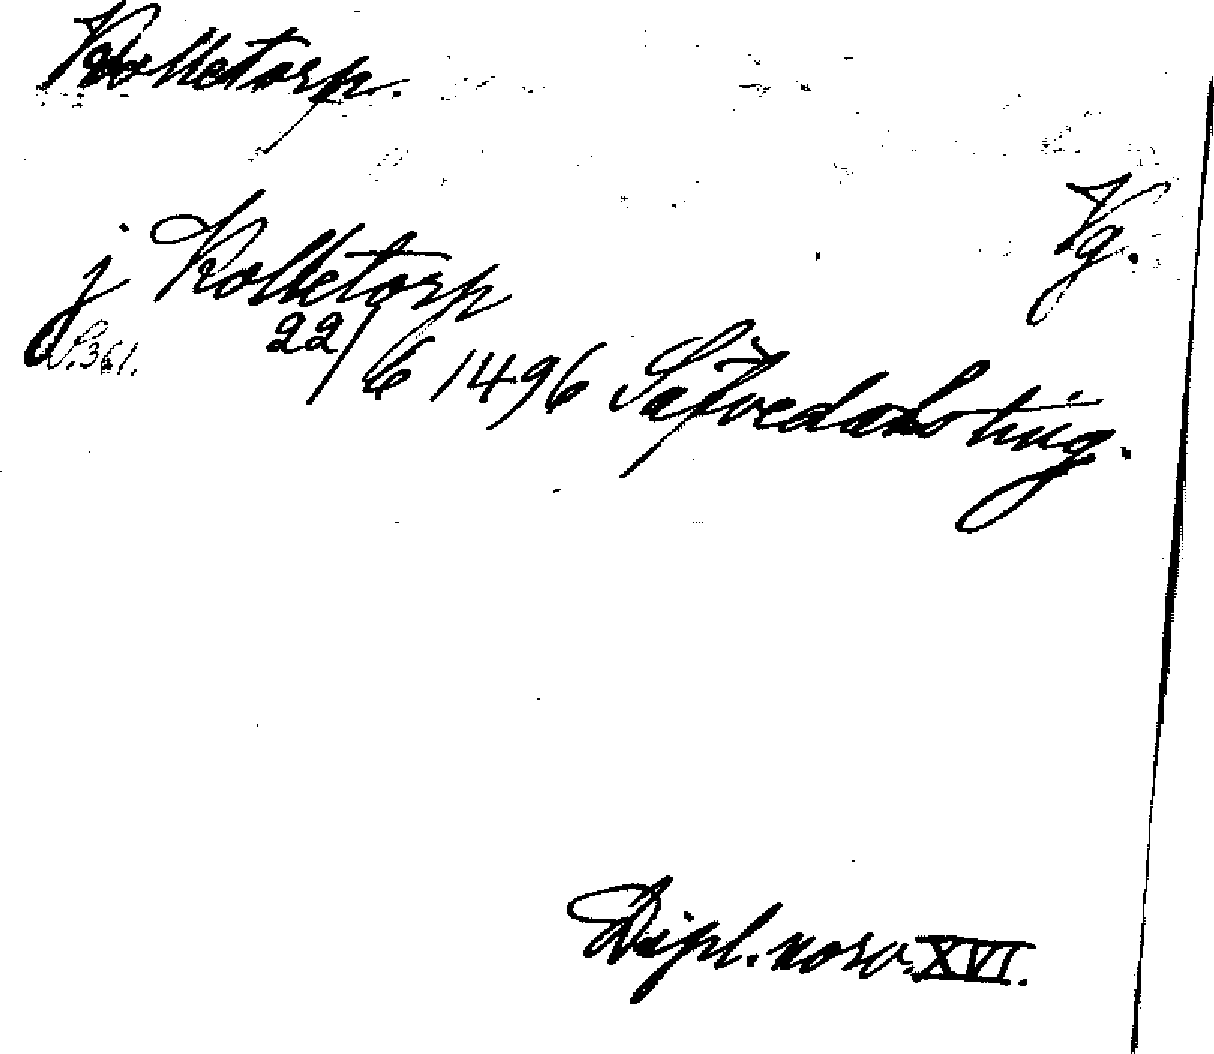 Kolletorp.
Vg.
j Kolletorp
S. 361.
22/6 1496 Säfvedals ting.
Dipl. norv. XVI.